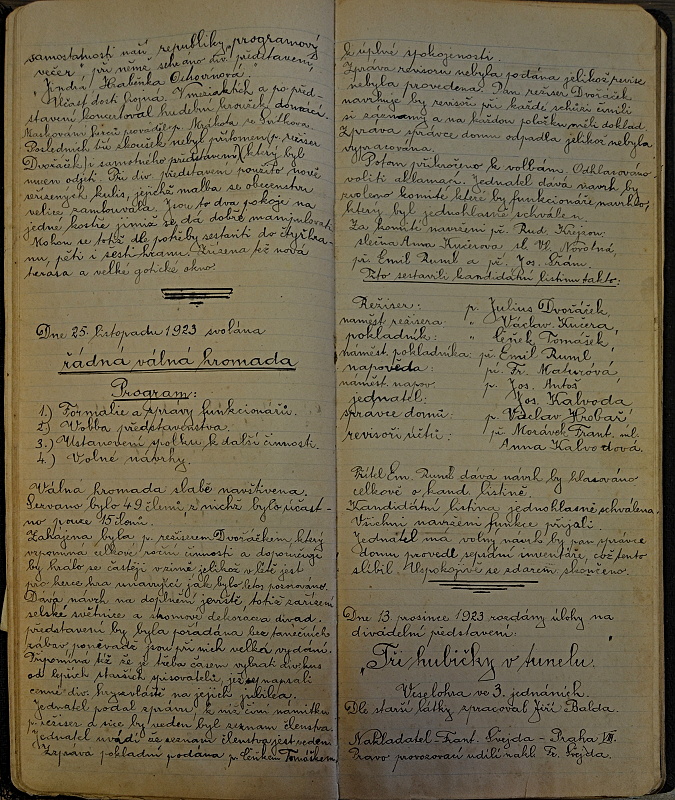 samostatnosti naší republiky „programový
večer" při němž sehráno div. představení
„Jindra Hraběnka Ostrovinová."
Účast dosti hojná. V meziaktích a po před-
stavení koncertoval hudební kroužek domácí.
Maskování herců pověřil p. Mžikola ze Svítkova.
Posledních tří zkoušek nebyl přítomen p. režiser
Dvořáček i samotného představení který byl
nucen odjeti. Při div. představení použito nově
seřízených kulis, jejichž malba se obecenstvu
velice zamlouvala. Jsou to dva pokoje na
jedné kostře jimiž se dá dobře manipulovati.
Mohou se totiž dle potřeby sestaviti do čtyřhra-
nu, pěti i šesti hranu. Zřízena též nová
terasa a velké gotické okno.
Dne 25. listopadu 1923 svolána
řádná valná hromada
Program:
1.) Formálie a zprávy funkcionářů.
2) Volba představenstva.
3.) Ustanovení spolku k další činnosti.
4.) Volné návrhy.
Valná hromada slabě navštívena.
Sezváno bylo 49 členů, z nichž bylo účast-
no pouze 15 členů.
Zahájena byla p. režiserem Dvořáčkem který
vzpomíná celkové roční činnosti a doporučuje
by hrálo se častěji v zimě jelikož v létě jest
pro herce hra unavující jak bylo letos poznáno.
Dává návrh na doplnění jeviště, totiž zařízení
selské světnice a stromové dekorace divad.
představení by byla pořádána bez tanečních
zábav poněvadž jsou při nich velká vydání.
Připomíná též že je třeba časem vybrati div. kus
od lepších starších spisovatelů, jež sepsali
cenné div. hry zvláště na jejich jubilea.
Jednatel podal zprávu k níž činí námitku
p. režiser a sice by veden byl seznam členstva.
Jednatel uvádí že seznam členstva jest veden.
Zpráva pokladní podána p. Čeňkem Tomáškem
k úplné spokojenosti.
Zpráva revisorů nebyla podána jelikož revise
nebyla provedena. Pan režiser Dvořáček
navrhuje by revisoři při každé schůzi činili
si záznamy a na každou položku měli doklad.
Zpráva správce domu odpadla jelikož nebyla
vypracována.
Potom přikročeno k volbám. Odhlasováno
voliti aklamací. Jednatel dává návrh by
zvoleno komité které by funkcionáře navrhlo,
který byl jednohlasně schválen.
Za komiti navrženi př. Rud. Krejzou:
slečna Anna Kučerova sl. Vl. Novotná,
př. Emil Ruml a př. Jos. Šrám.
Tito sestavili kandidátní listinu takto:
Režiser: p. Julius Dvořáček,
náměst. režisera: „ Václav Kučera,
pokladník: „ Čeněk Tomášek,
náměst. pokladníka: př. Emil Ruml,
napověda: př. Fr. Maturová
náměst. napov. p. Jos. Antoš
jednatel: Jos. Kalvoda
správce domu: p. Václav Hrobař
revisoři účtů: př. Morávek Frant. ml.
Anna Kalvodová.
Přítel Em. Ruml dává návrh by hlasováno
celkově o kand. listině.
Kandidátní listina jednohlasně schválena.
Všichni navržení funkce přijali.
Jednatel má volný návrh by pan správce
domu provedl sepsání inventáře, což tento
slíbil. Uspokojivě se zdarem skončeno.
Dne 13. prosince 1923 rozdány úlohy na
divadelní představení:
„Tři hubičky v tunelu."
Veselohra ve 3. jednáních.
Dle starší látky zpracoval Jiří Balda.
Nakladatel – Frant. Švejda – Praha VIII.
Právo provozovací udílí nakl. Fr. Švejda.